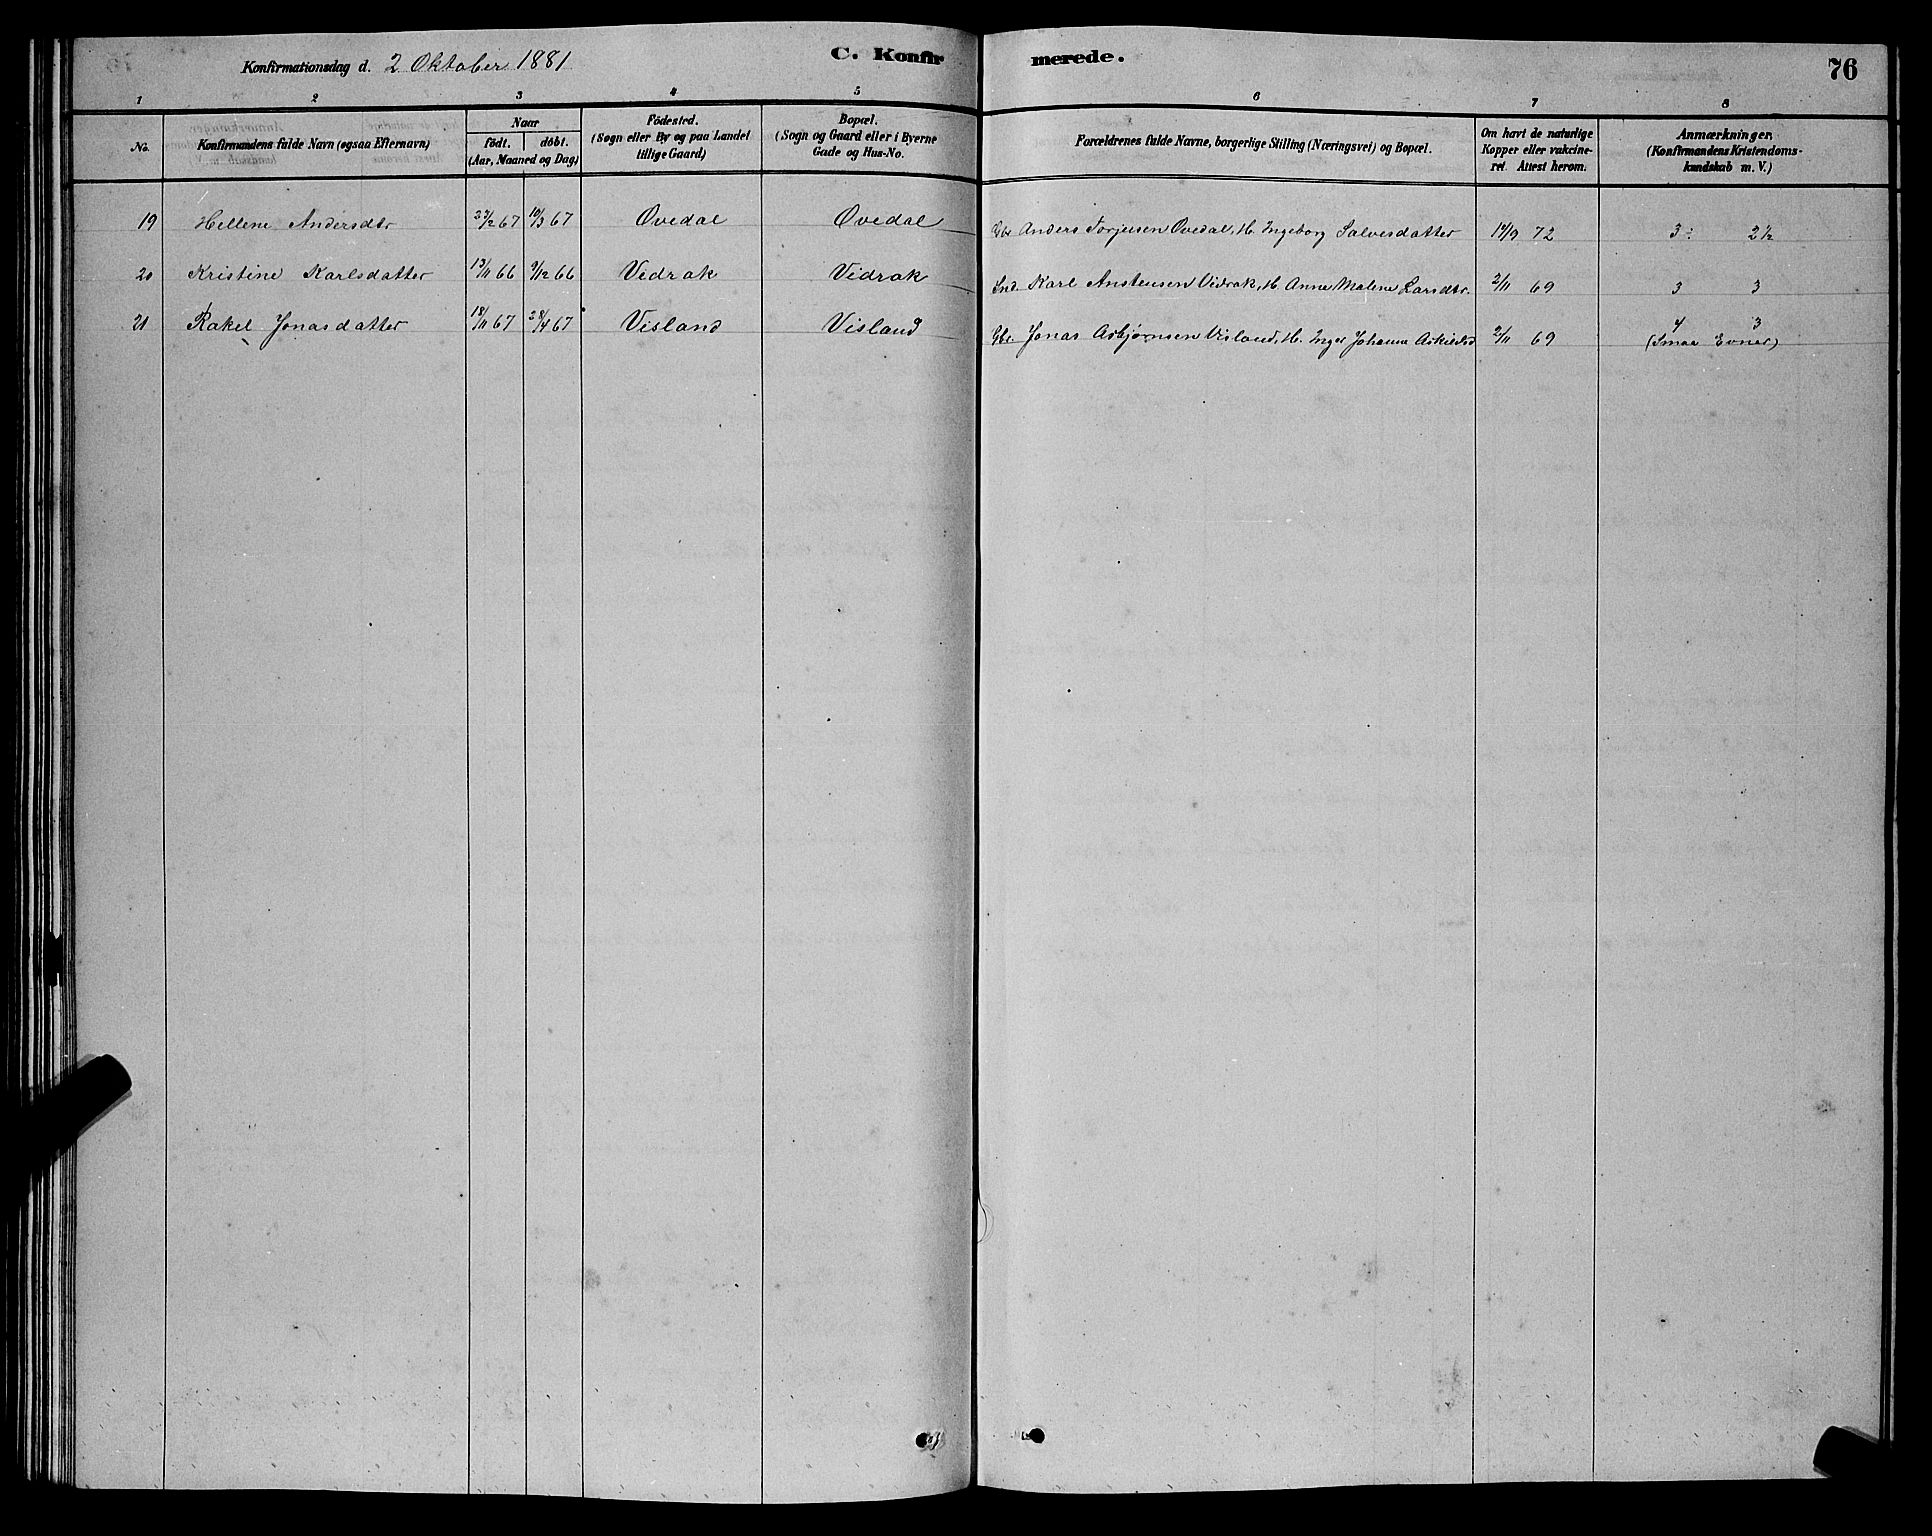 Konfirmationsdag d. 2 Oktober 1881 C. Konfirmerede. 76
1 2 3 4 5 6 7 8
No. Konfirmandens fulde Navn (ogsaa Efternavn) Naar födt. döbt. (Aar, Maaned og Dag) Födested. (Sogn eller By og paa Landet tillige Gaard) Bopæl. (Sogn og Gaard eller i Byerne Gade og Hus-No. Forældrenes fulde Navne, borgerlige Stilling (Næringsvei) og Bopæl. Om havt de naturlige Kopper eller vakcineret. Attest herom. Anmærkninger. (Konfirmandens Kristendomskundskab m. V.)
19 Hellene Andersdtr 67 10/3 67 Øvedal Øvedal Gbr Anders Torjusen Øvedal, H. Ingeborg Salvesdatter 14/9 72 3÷ 2½
20 Kristine Karlsdatter 13/11 66 9/12 66 Vidrak Vidrak Ind. Karl Anstensen Vidrak, H. Anne Malene Larsdtr. 2/11 69 3 3
21 Rakel Jonasdatter 18/11 67 28/4 67 Visland Visland Gbr. Jonas Asbjørnsen Visland, H. Inger Johanne 2/11 69 4 3
(Smaa Evner)